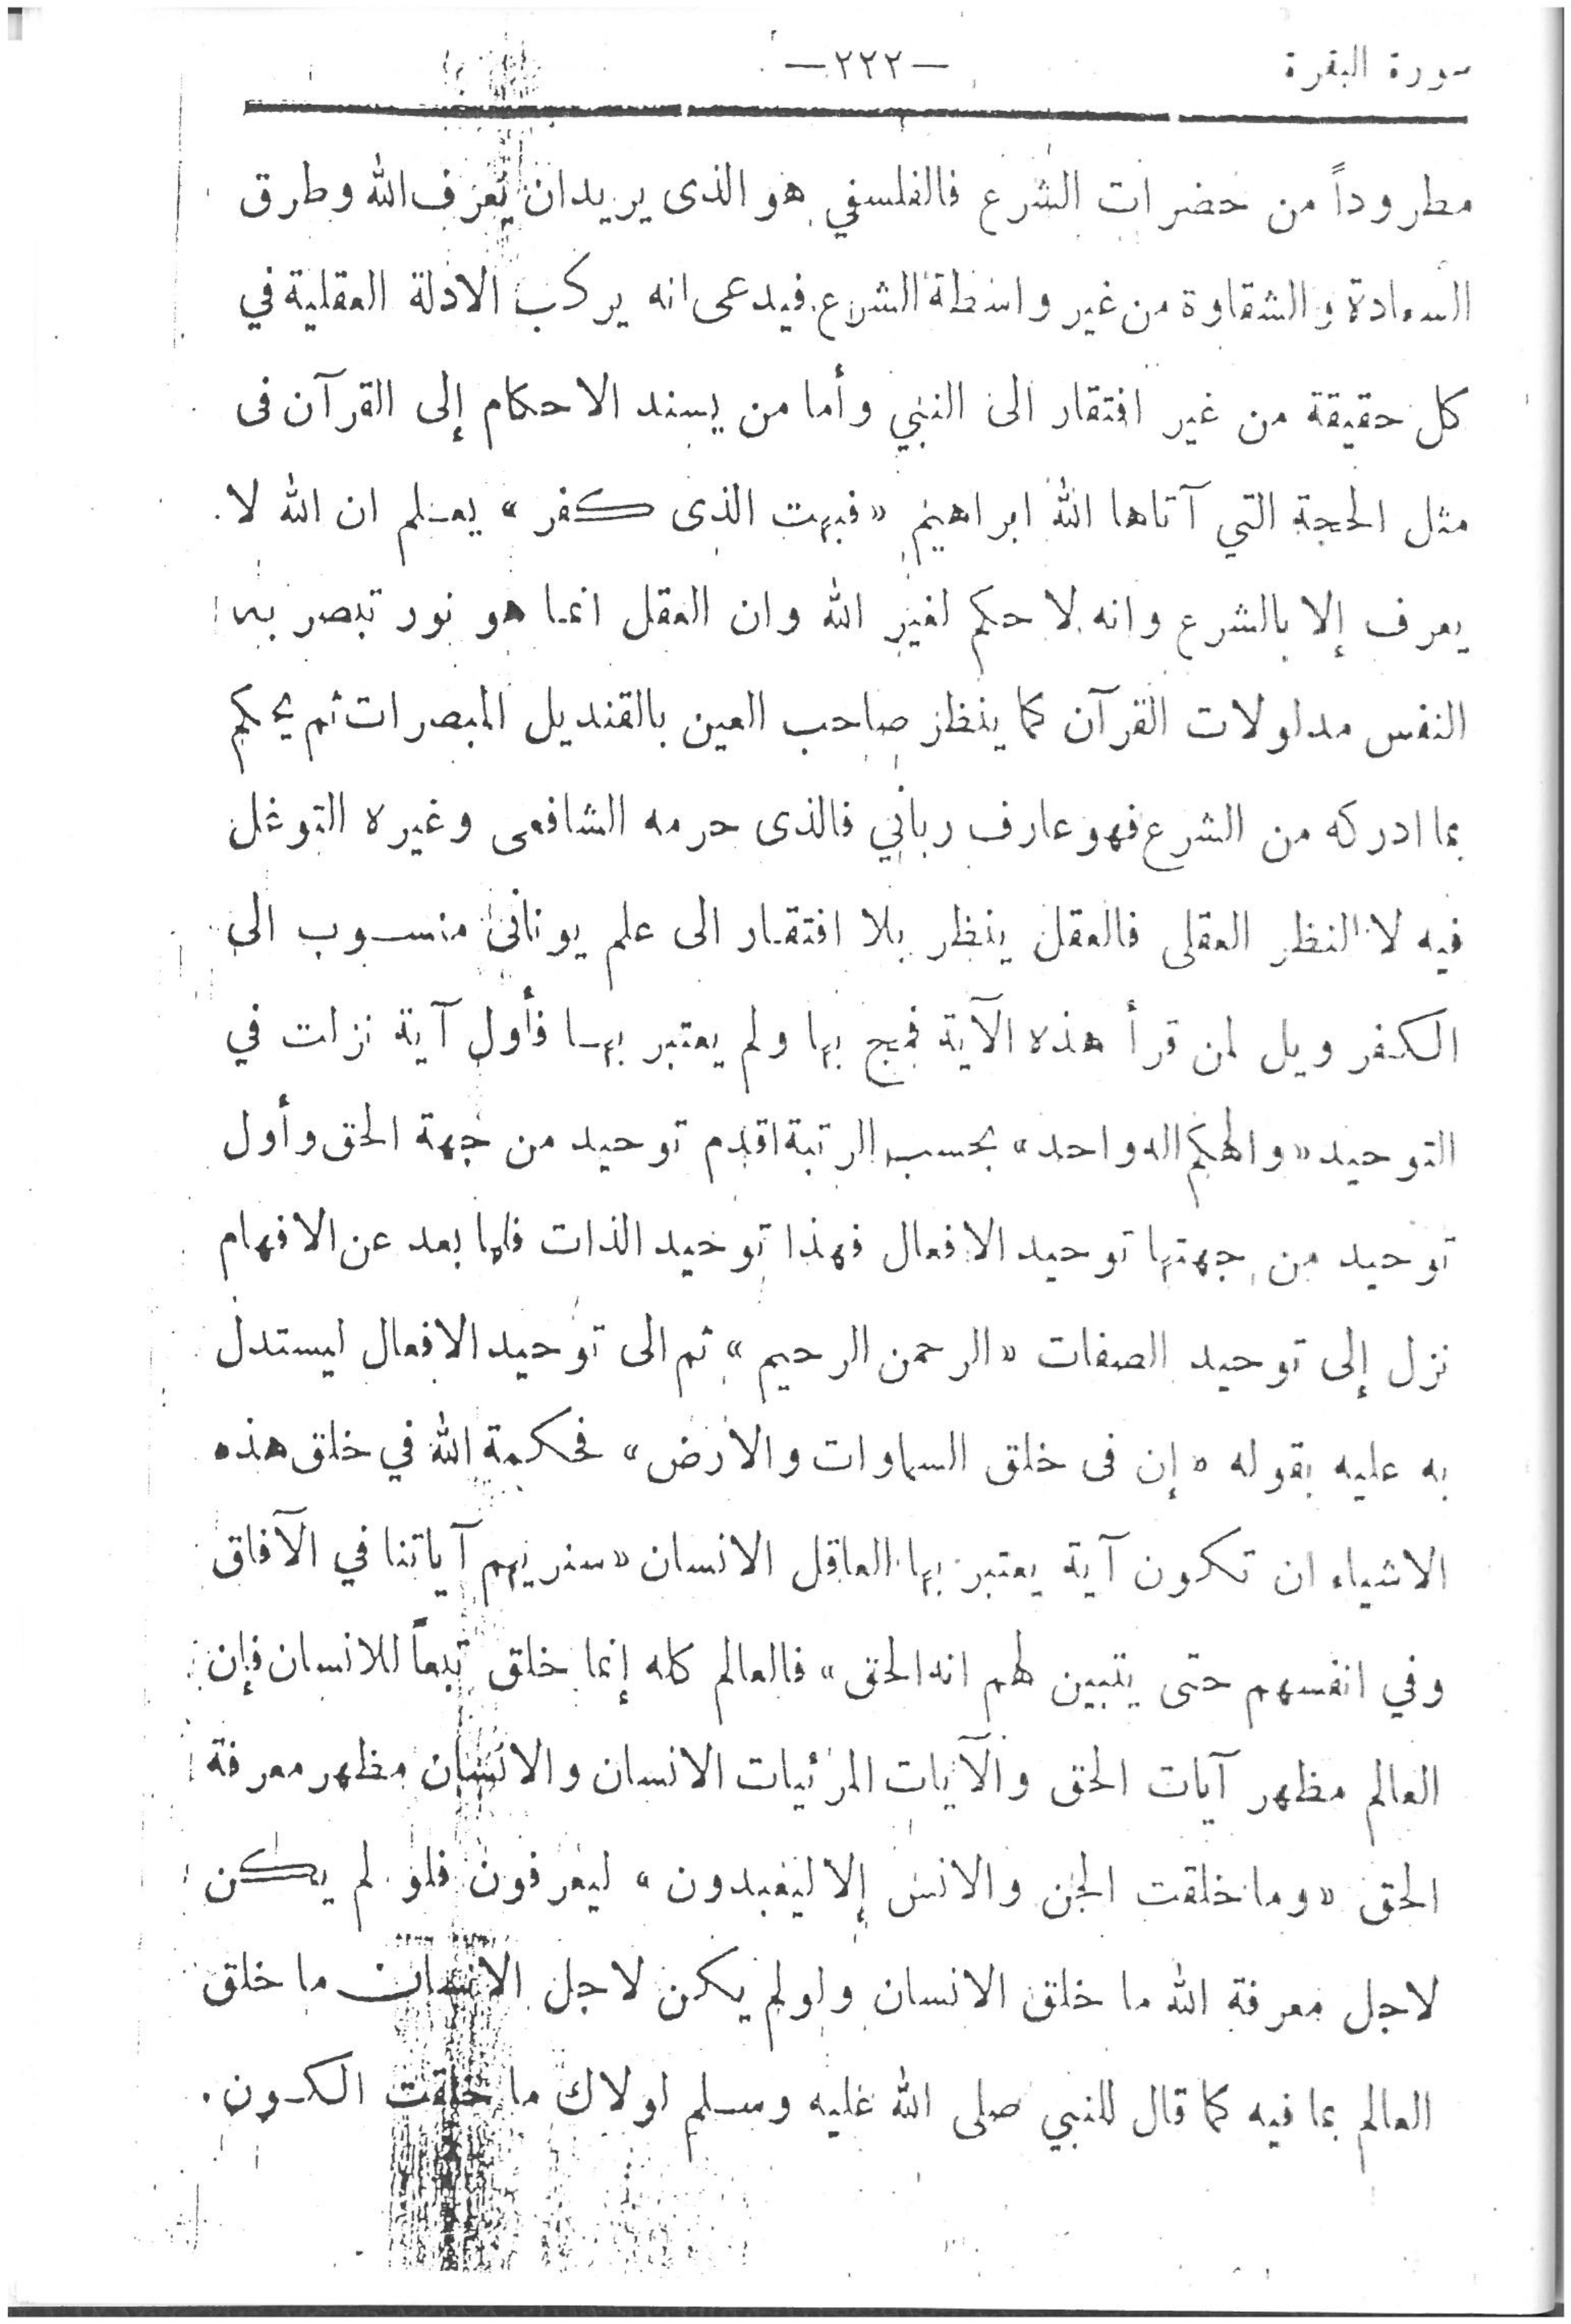 سورة البقرة
—٢٢٢—
مطروداً من حضرات الشرع فالفلسفي هو الذى يريد ان يعرف الله وطرق
السعادة والشقاوة من غير واسطة الشرع فيدعى انه يركب الادلة العقلية في
كل حقيقة من غير افتقار الى النبي وأما من يسند الاحكام إلى القرآن فى
مثل الحجة التي آتاها الله ابراهيم «فبهت الذى كفر» يعلم ان الله لا
يعرف إلا بالشرع وانه لا حكم لغير الله وان العقل انما هو نور تبصر به
النفس مدلولات القرآن كما ينظر صاحب العين بالقنديل المبصرات ثم يحكم
بما ادركه من الشرع فهو عارف رباني فالذى حرمه الشافعى وغيره التوغل
فيه لا النظر العقلى فالعقل ينظر بلا افتقار الى علم يونانى منسوب الى
الكفر ويل لمن قرأ هذه الآية فمج بها ولم يعتبر بها فأول آية نزلت في
التوحيد «والهكم اله واحد» بحسب الرتبة اقدم توحيد من جهة الحق وأول
توحيد من جهتها توحيد الافعال فهذا توحيد الذات فلما بعد عن الافهام
نزل إلى توحيد الصفات «الرحمن الرحيم» ثم الى توحيد الافعال ليستدل
به عليه بقوله «إن فى خلق السماوات والارض» فحكمة الله في خلق هذه
الاشياء ان تكون آية يعتبر بها العاقل الانسان «سنريهم آياتنا في الآفاق
وفي انفسهم حتى يتبين لهم انه الحق» فالعالم كله إنما خلق تبعاً للانسان فإن
العالم مظهر آيات الحق والآيات المرئيات الانسان والانسان مظهر معرفة
الحق «وما خلقت الجن والانس إلا ليعبدون» ليعرفون فلو لم يكن
لاجل معرفة الله ما خلق الانسان ولو لم يكن لاجل الانسان ما خلق
العالم بما فيه كما قال للنبي صلى الله عليه وسلم لولاك ما خلقت الكون.